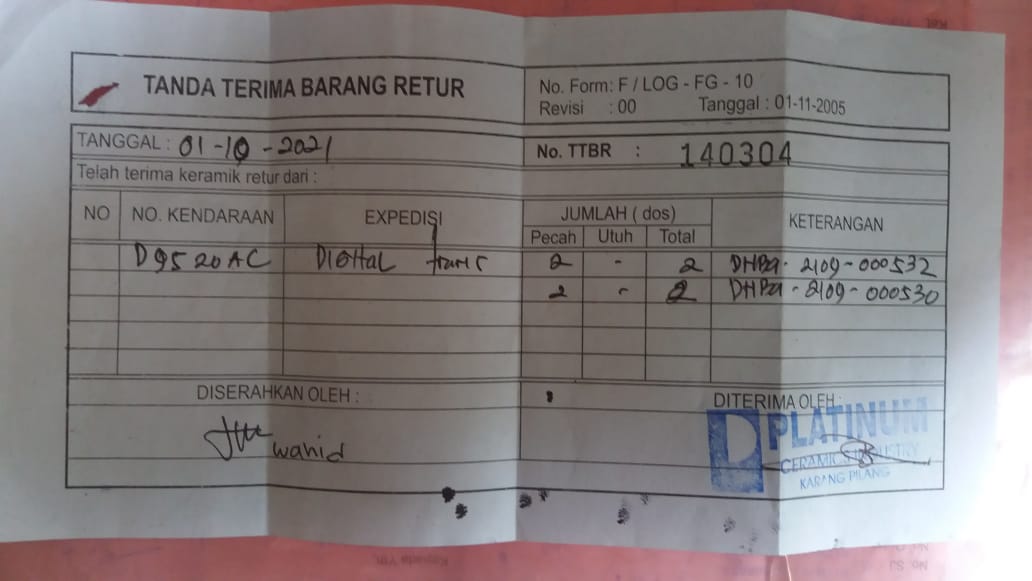 TANDA TERIMA BARANG RETUR
No. Form: F / LOG - FG - 10
Revisi : 00 Tanggal : 01-11-2005
TANGGAL : 01-10-2021
No. TTBR : 140304
Telah terima keramik retur dari :
NO NO. KENDARAAN EXPEDISI JUMLAH ( dos) KETERANGAN
Pecah Utuh Total
D 9520 AC DIGITAL trans 2 - 2 DHPa - 2109-000532
2 - 2 DHPa - 2109-000530
DISERAHKAN OLEH : DITERIMA OLEH :
wahid
PLATINUM
CERAMICS INDUSTRY
KARANG PILANG